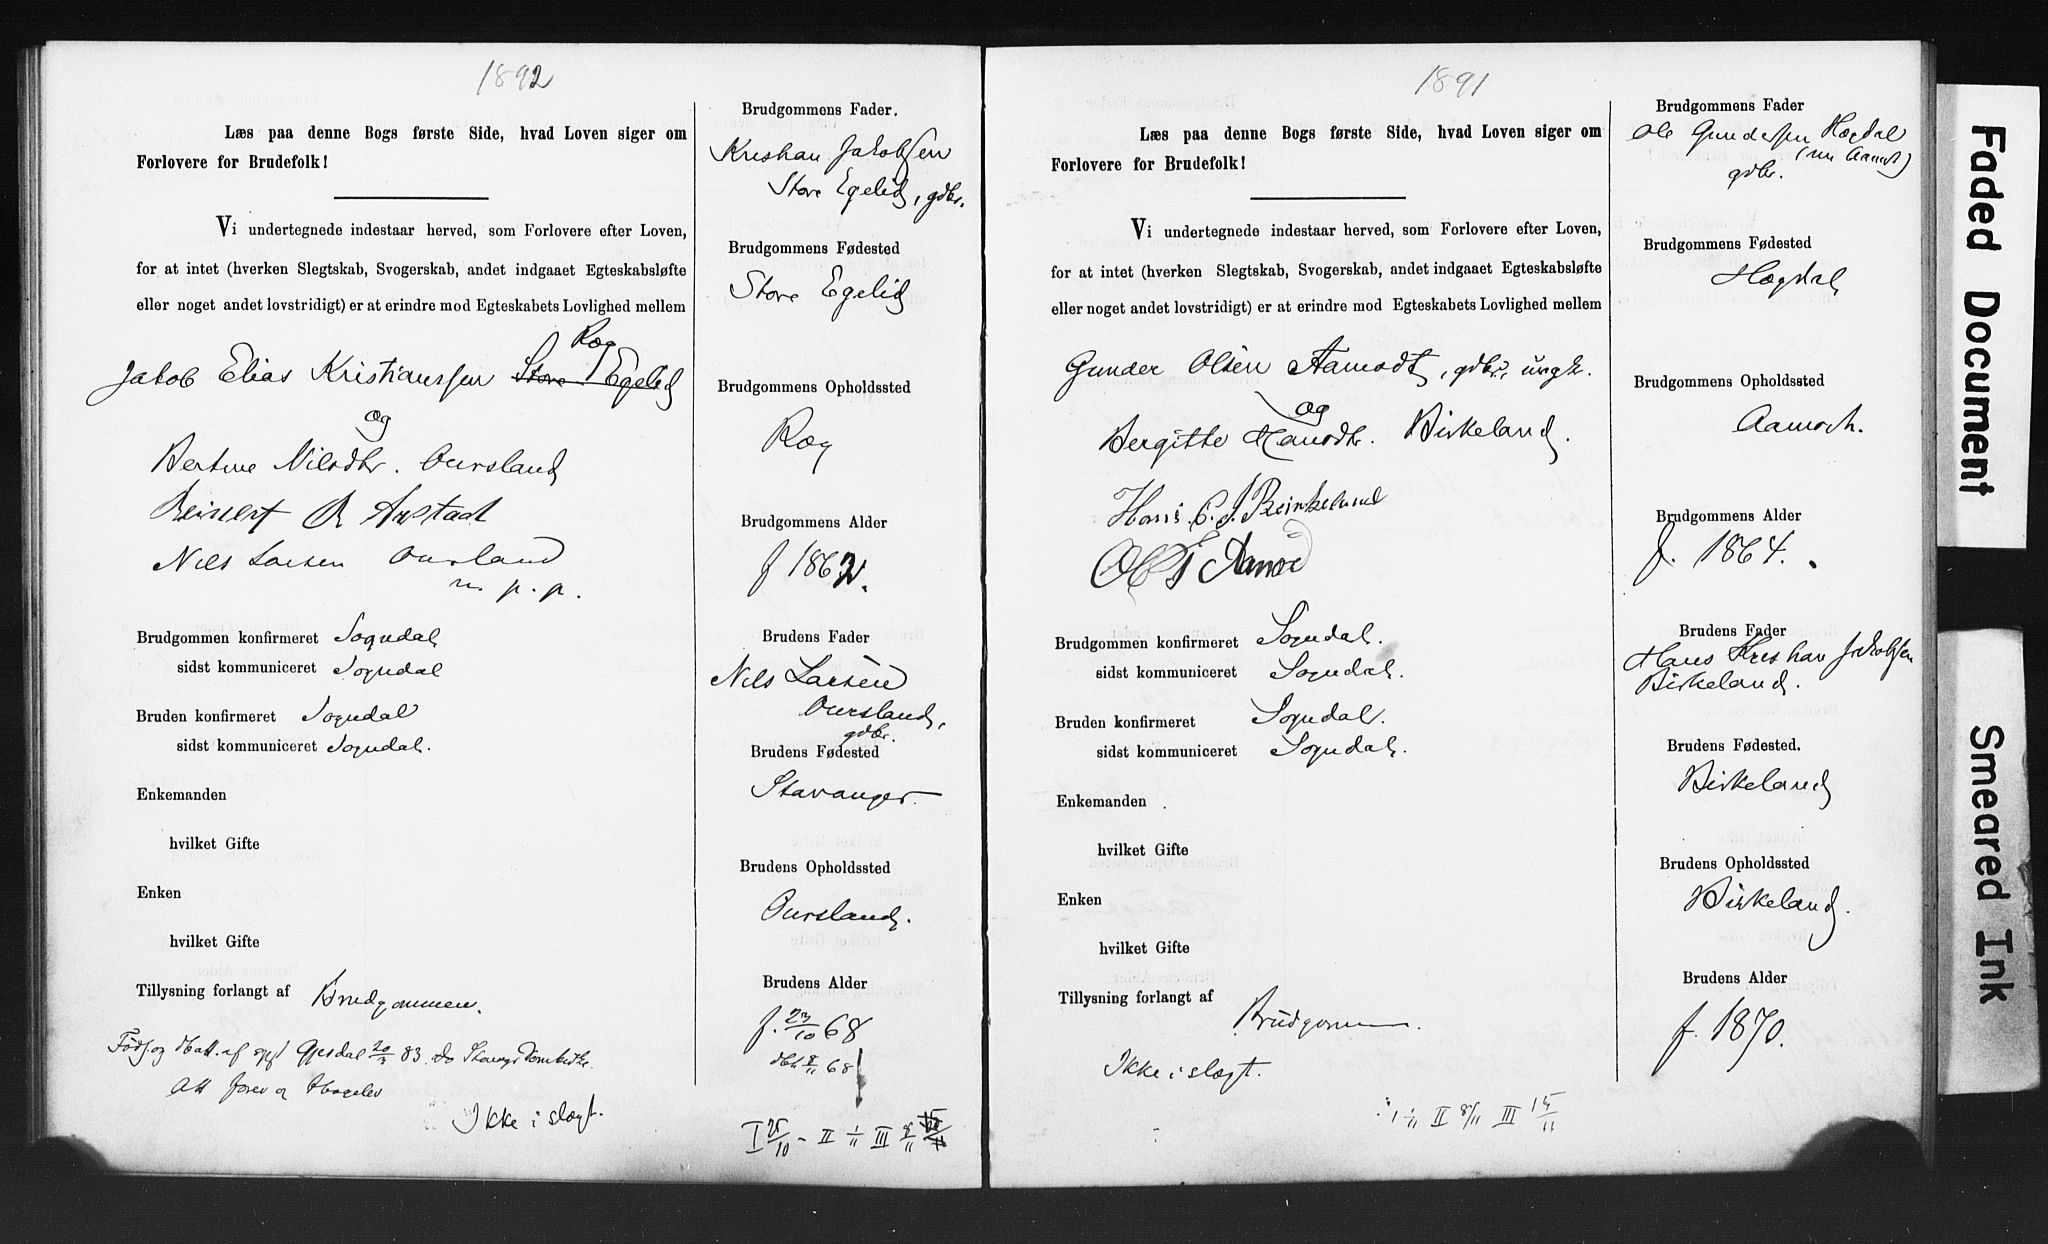 1892
Læs paa denne Bogs første Side, hvad Loven siger om
Forlovere for Brudefolk!
Vi undertegnede indestaar herved, som Forlovere efter Loven,
for at intet (hverken Slegtskab, Svogerskab, andet indgaaet Egteskabsløfte
eller noget andet lovstridigt) er at erindre mod Egteskabets Lovlighed mellem
Ræg
Jakob Elias Kristianssen Store Egelid
og
Bertine Nilsdtr. Oursland
Reinert R Arstad
Nils Larsen Oursland
m. p. p.
Brudgommen konfirmeret Sogndal
sidst kommuniceret Sogndal
Bruden konfirmeret Sogndal
sidst kommuniceret Sogndal.
Enkemanden
hvilket Gifte
Enken
hvilket Gifte
Tillysning forlangt af Brudgommen.
Føds. og
Gjesdal 20/3 83.
Att
Ikke i slægt.
Brudgommens Fader.
Kristian Jakobsen
Store Egelid, gdbr.
Brudgommens Fødested
Store Egelid
Brudgommens Opholdssted
Ræg
Brudgommens Alder
f 1862.
Brudens Fader
Nils Larsen
Oursland,
gdbr.
Brudens Fødested
Stavanger.
Brudens Opholdssted
Oursland.
Brudens Alder
f. 23/10 68
dbt 8/11 68
I 25/10 - II 1/11 III 8/11
1891
Læs paa denne Bogs første Side, hvad Loven siger om
Forlovere for Brudefolk!
Vi undertegnede indestaar herved, som Forlovere efter Loven,
for at intet (hverken Slegtskab, Svogerskab, andet indgaaet Egteskabsløfte
eller noget andet lovstridigt) er at erindre mod Egteskabets Lovlighed mellem
Gunder Olsen Aamodt, gdbr., ungk.
og
Bergitte Hansdtr. Birkeland.
Hans C. J. Beirkeland
Aamod
Brudgommen konfirmeret Sogndal.
sidst kommuniceret Sogndal.
Bruden konfirmeret Sogndal.
sidst kommuniceret Sogndal.
Enkemanden
hvilket Gifte
Enken
hvilket Gifte
Tillysning forlangt af Brudgommen.
Ikke i slægt.
I 1/11 II 8/11 III 15/11
Brudgommens Fader
Ole Gundersen Hægdal
(nu Aamot)
gdbr.
Brudgommens Fødested
Hægdal
Brudgommens Opholdssted
Aamodt.
Brudgommens Alder
f. 1864.
Brudens Fader
Hans Kristian Jakobsen
Birkeland.
Brudens Fødested.
Birkeland
Brudens Opholdssted
Birkeland.
Brudens Alder
f. 1870.
Faded Document
Smeared Ink